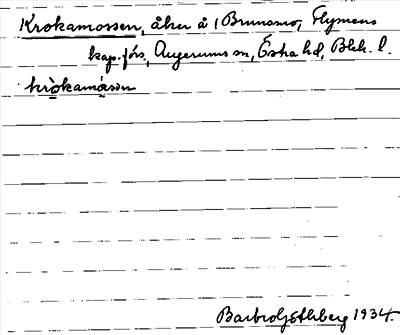 Krokamossen, åker å 1 Brunsmo, Flymens
kap. förs., Augerums sn, Östra hd, Blek. l.
kròkamǻsən
Barbro Göthberg 1934.